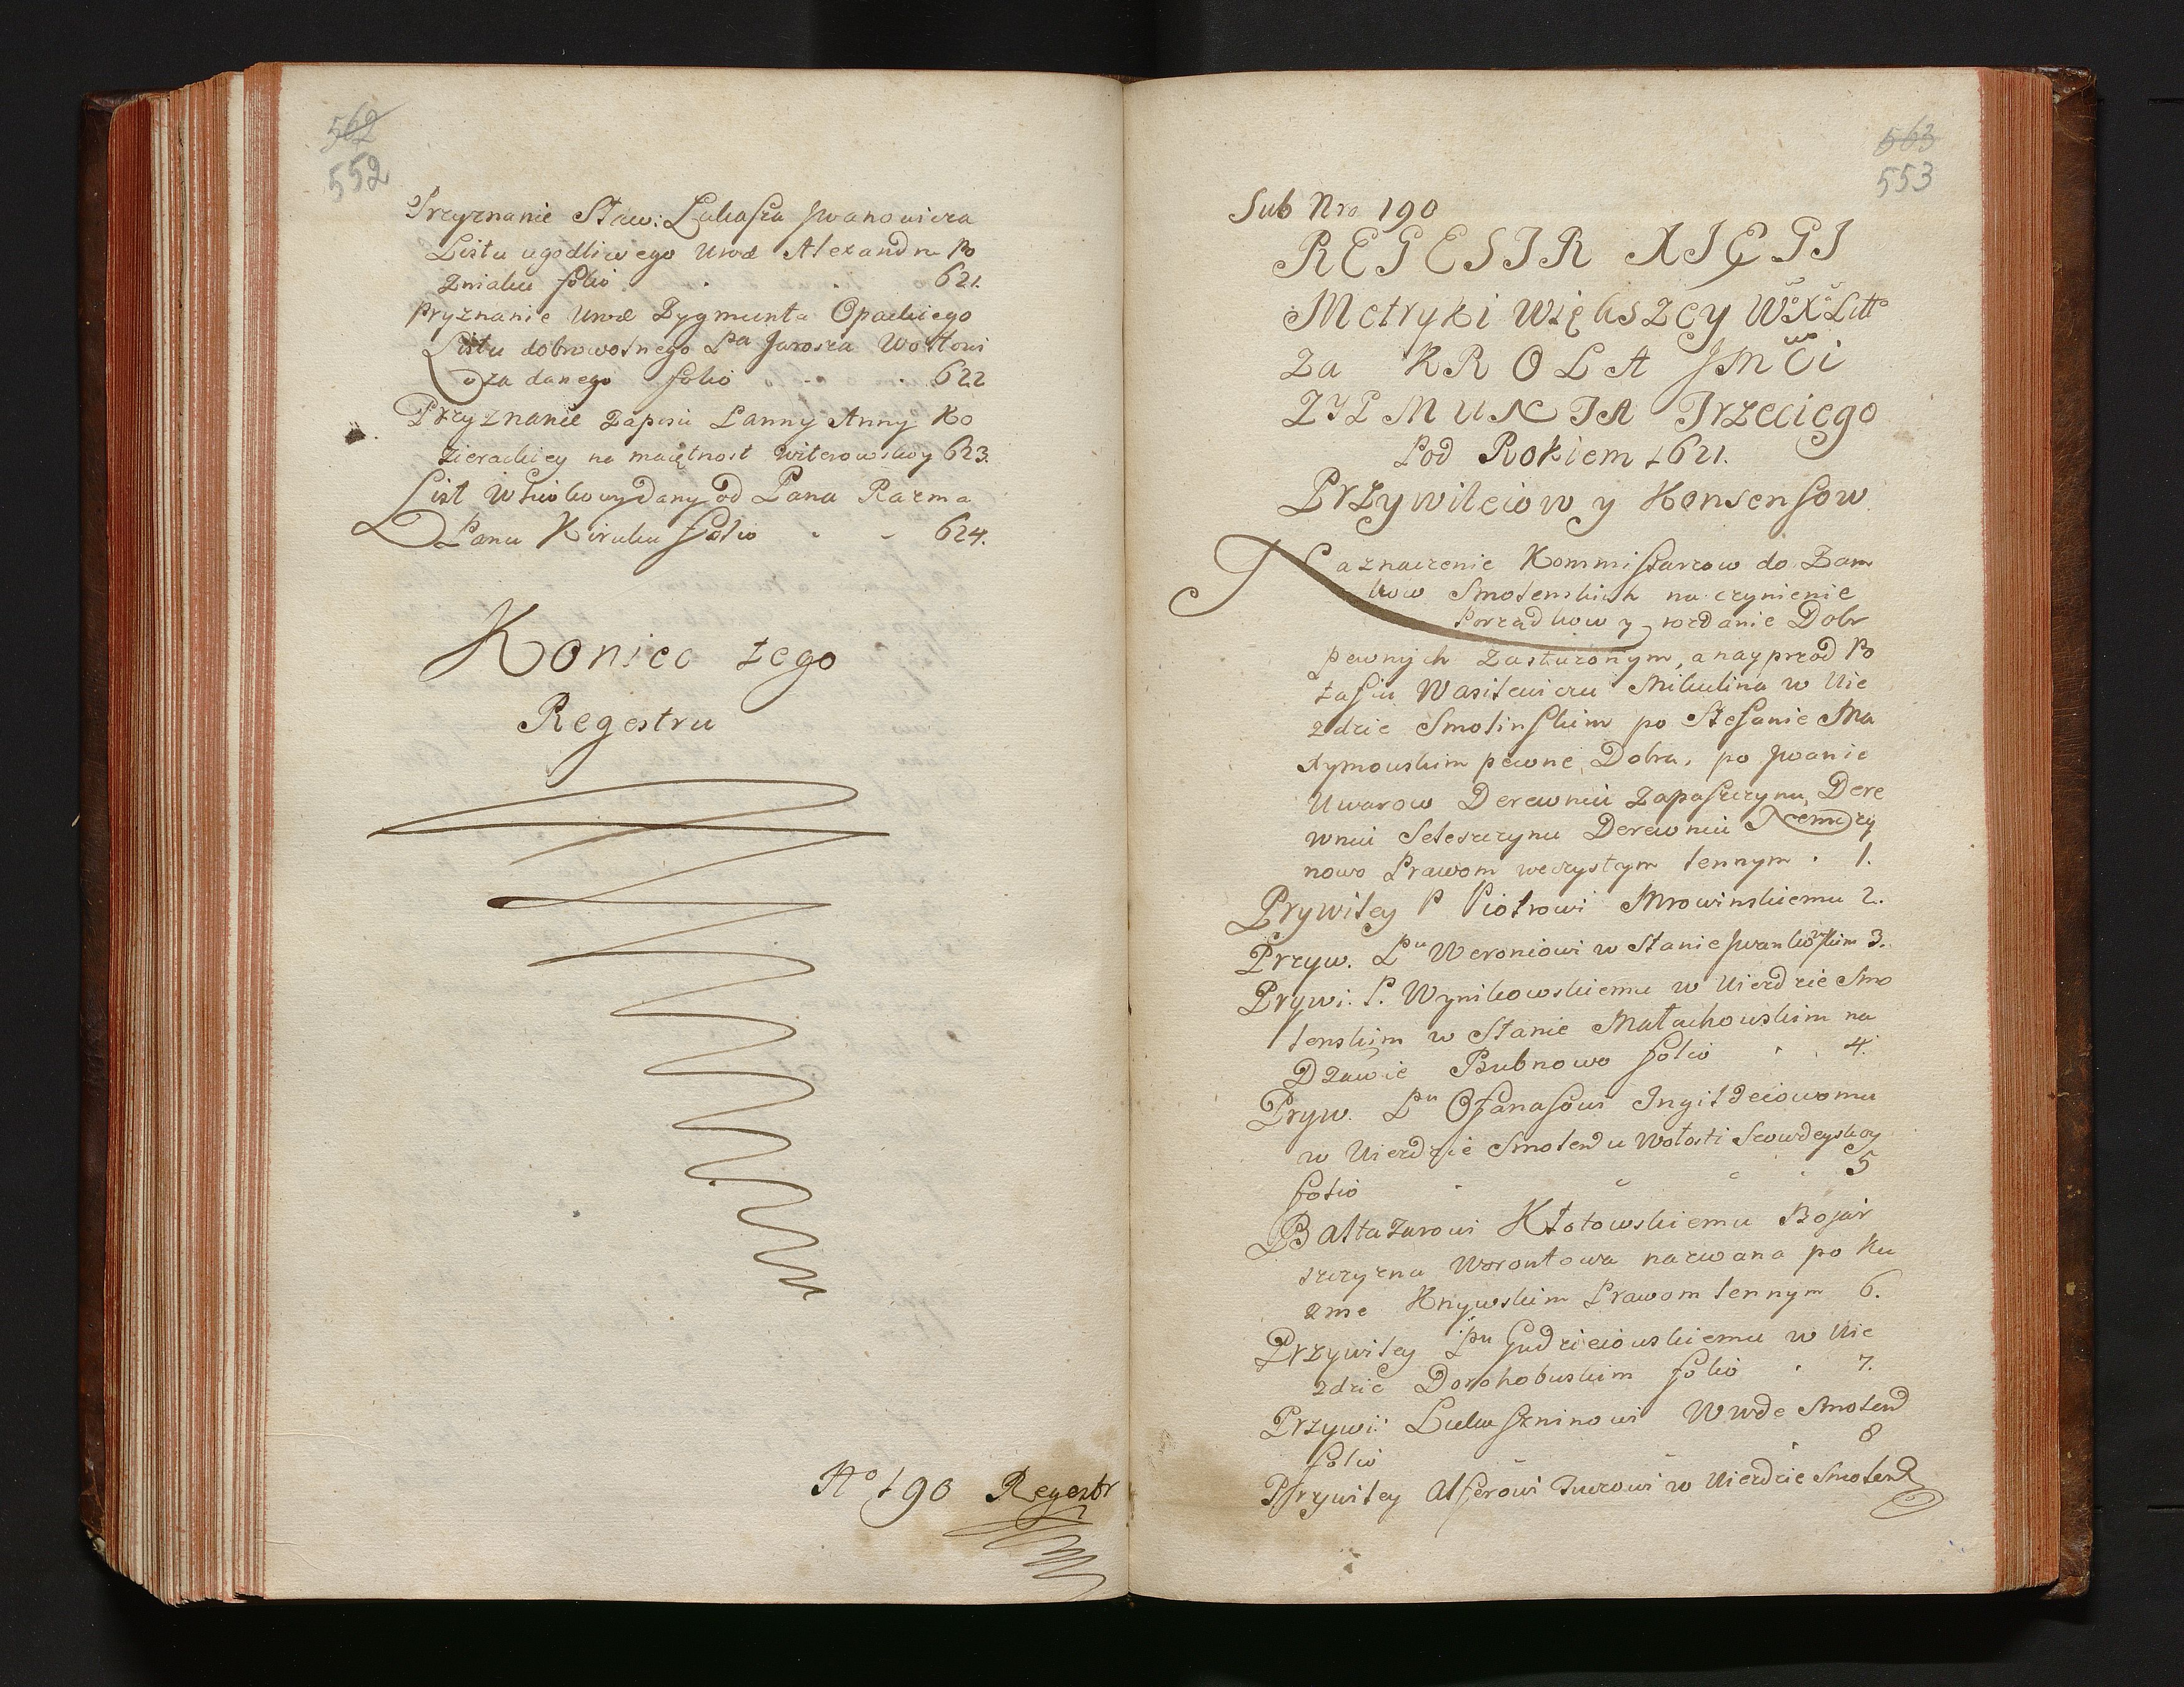 562
552
Przyznanie Sław: Łukasza Jwanowicza
Listu ugodliwego Urod Alexandru Ro
zniaku folio 621.
Pryznanie Urod Zygmunta Opackiego
Listu dobrowolnego Pa Jarosza Wołłowi
cza danego folio 622
Przyznanie Zapisu Panny Anny Ko
zierackiey na maiętnost Witerowskoy 623.
List dany od Pana Razma
Panu Kiruku folio 624.
Koniec tego
Regestru
No 190 Regestr
563
553
Sub Nro 190
REGESTR XIĘGI
Metryki Większey W X Litto
Za KROLA JMCi
ZYGMUNTA Trzeciego
Pod Rokiem 1621.
Przywileiow y Konsensow
Naznaczenie Kommissarzow do Zam
kow Smolenskich na czynienie
Porządkow y rozdanie Dobr
pewnych zasłużonym, a nayprzod Po
tasiu Wasilewiczu Mikulina w Uie
zdzie Smolinskim po Stefanie Ma
xymowskim pewne Dobra, po Jwanie
Uwarow Derewniu Zapaszczynu, Dere
wniu Seleszczynu Derewniu
nowo Prawom weczystym lennym 1.
Prywiley P Piotrowi Mrowinskiemu 2.
Przyw. Pu Weroniowi w Stanie Jwankowskim 3.
Prywi: P. Wynikowskiemu w Uiezdzie Smo
lenskim w Stanie Małachowskim na
Dzawie Bubnowo folio 4.
Pryw. Pu Ofanasowi Ingildeiowomu
w Uiezdzie Smolend u Wołosti Szowdeyskoy
folio 5
Baltazarowi Kłotowskiemu Bojar
szczyzna Worontowa nazwana po Ku
zme Knywskim Prawom lennym 6.
Przywiley Pu Gudzieiowskiemu w Uie
zdzie Dorohobuskim folio 7.
Przywi: Lukaszninowi W wde Smolend
folio 8
Przywiley Alferowi Turowi w Uiezdzie Smolend